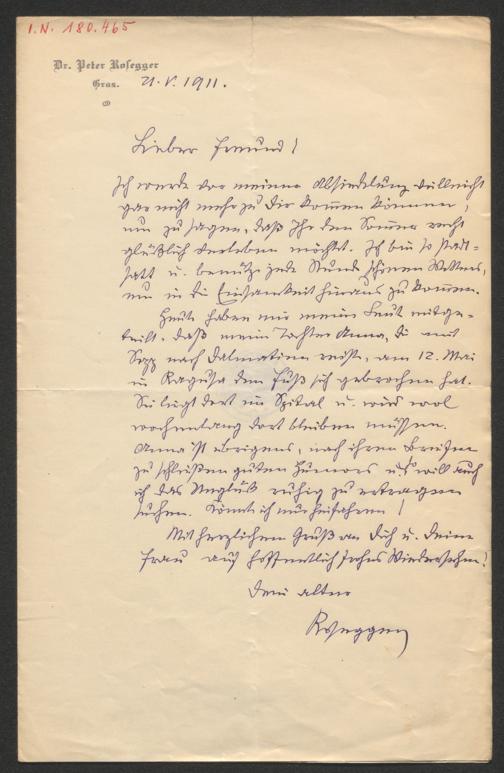 I.N. 180.465
Dr. Peter Rosegger
Graz.
21.V.1911.
Lieber Freund!
Ich werde vor meiner Absiedelung vielleicht
gar nicht mehr zu Dir kommen können,
um zu sagen, daß Ihr den Sommer recht
glücklich verleben möchtet. Ich bin so stadt-
satt u. benütze jede Stunde schönen Wetters,
um in die Einsamkeit hinaus zu kommen.
Heute haben mir meine Leut mitge-
teilt, daß meine Tochter Anna, die mit
Sepp nach Dalmatien reiste, am 12. Mai
in Ragusa den Fuß sich gebrochen hat.
Sie liegt dort im Spital u. wird wol
wochenlang dort bleiben müssen.
Anna ist übrigens, nach ihren Briefen
zu schließen guten Humors u. so will auch
ich das Unglück ruhig zu ertragen
suchen. Könnt ich nur hinfahren!
Mit herzlichem Gruß an Dich u. Deine
Frau auf hoffentlich frohes Wiedersehen!
Dein alter
Rosegger